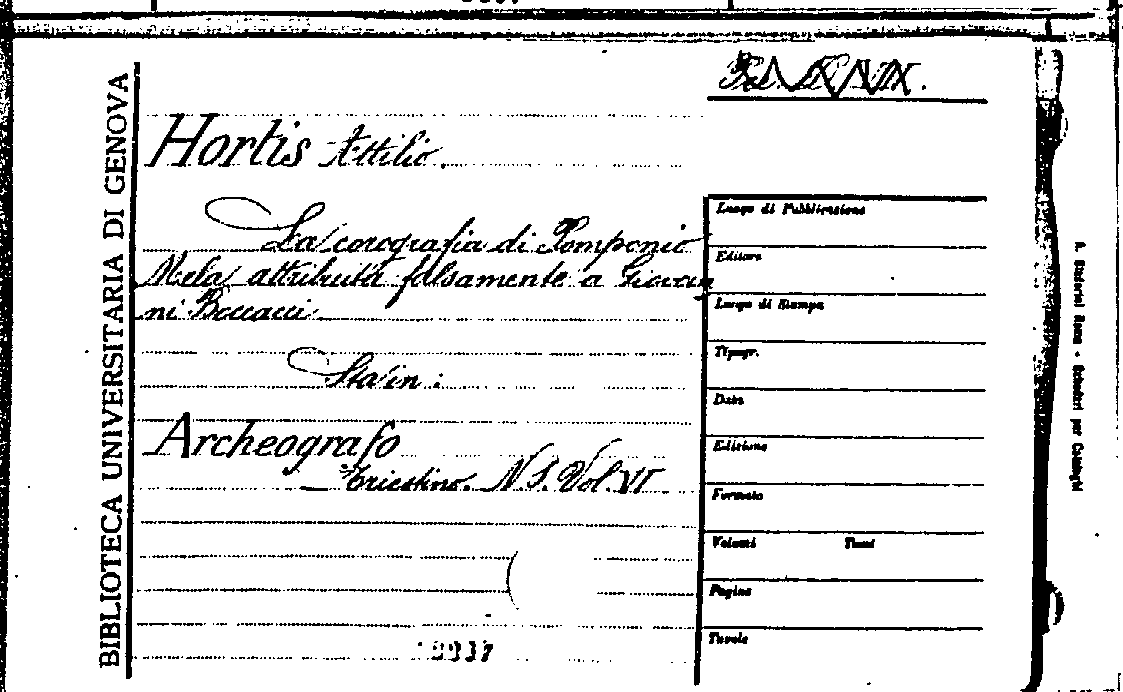 BIBLIOTECA UNIVERSITARIA DI GENOVA
Hortis Attilio.
La corografia di Pomponio
Mela attribuita falsamente a Giovan
ni Boccacci.
Sta in:
Archeografo
Triestino. N.S. Vol. VI
Luogo di Pubblicazione
Editore
Luogo di Stampa
Tipogr.
Data
Edizione
Formato
Volumi Tomi
Pagine
Tavole